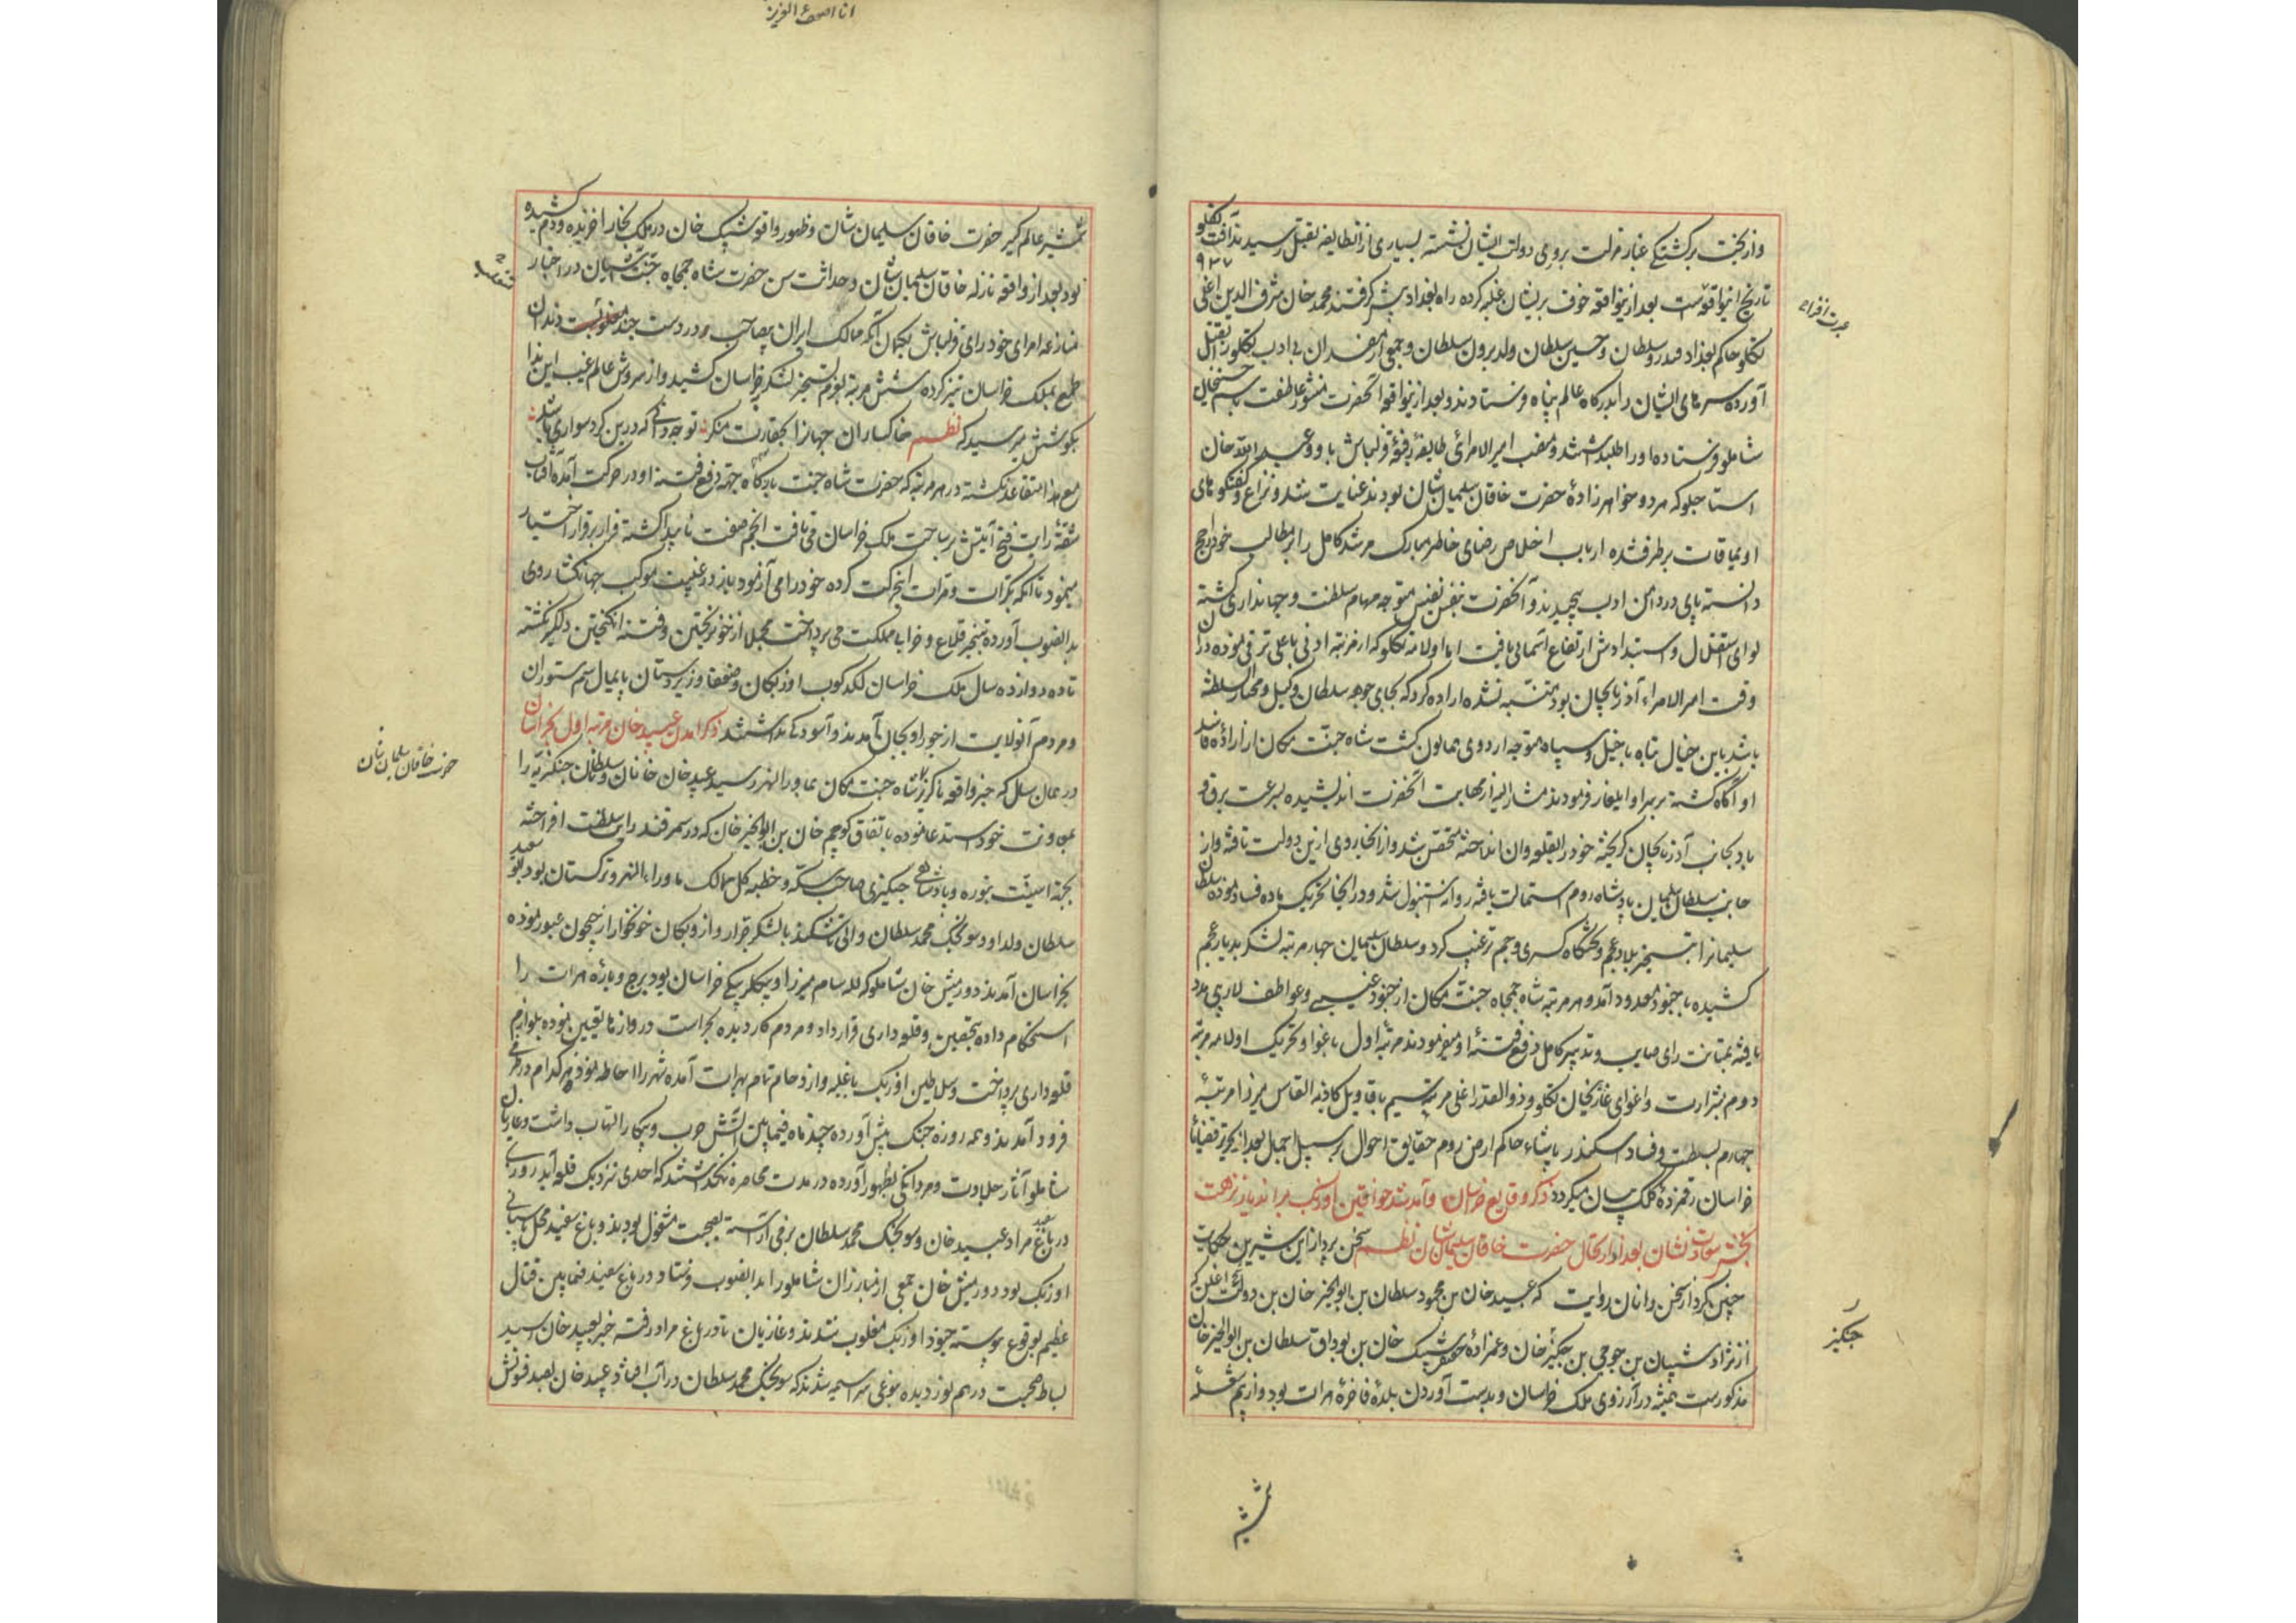 و از بخت برگشتگی غبار مذلت بروی دولت ایشان نشسته بسیاری از آنطایفه بقتل رسیدند آفت تکلو
۹۳۷
تاریخ اینواقعه است بعد از اینواقعه خوف بریشان غلبه کرده راه بغداد پیش گرفتند محمد خان شرف الدین اغلی
تکلو حاکم بغداد قدور سلطان و حسین سلطان ولد برون سلطان و جمعی از مفسدان بی ادب تکلو را بقتل
آورده سرهای ایشان را بدرگاه عالم پناه فرستادند و بعد از اینواقعه آنحضرت منشور عاطفت باسم حسینخان
شاملو فرستاده او را طلب داشتند و منصب امیر الامرائی طایفه رفیعه قزلباش باو و عبد الله خان
استاجلو که هر دو خواهر زادهٔ حضرت خاقان سلیمان شان بودند عنایت شد و نزاع و گفتگوهای
اویماقات برطرف شده ارباب اخلاص رضای خاطر مبارک مرشد کامل را بر مطالب خود راجح
دانسته پای در دامن ادب پیچیدند و آنحضرت بنفس نفیس متوجه مهام سلطنت و جهانداری گشته
لوای استقلال و استبدادش ارتفاع آسمانی یافت اما اولامه تکلو که از مرتبه ادنی باعلی ترقی نموده در آن
وقت امیر الامراء آذربایجان بود متنبه نشده اراده کرد که بجای جوهه سلطان وکیل و مختار السلطنه
باشد باین خیال تباه با خیل و سپاه متوجه اردوی همایون گشت شاه جنت مکان از ارادهٔ فاسد
او آگاه گشته بر سر او ایلغار فرمودند مشار الیه از مهابت آنحضرت اندیشیده بسرعت برق و
باد بجانب آذربایجان گریخته خود را بقلعه وان انداخته متحصن شد و از آنجا روی ازین دولت تافته و از
جانب سلطان سلیمان پادشاه روم استمالت یافته روانه استنبول شد و در آنجا تحریک ماده فساد نموده سلطان
سلیمانرا بتسخیر بلاد عجم و تختگاه کسری و جم ترغیب کرد و سلطان سلیمان چهار مرتبه لشکر بدیار عجم
کشیده با جنود نامعدود آمد و هر مرتبه شاه جمجاه جنت مکان از جنود غیبی و عواطف لاریبی مدد
یافته بمتانت رای صایب و تدبیر کامل دفع فتنهٔ او میفرمودند مرتبهٔ اول باغوا و تحریک اولامه مرتبه
دوم بشرارت و اغوای غازیخان تکلو و ذوالقدر اغلی مرتبه سیم باقاویل کاذبه القاس میرزا مرتبهٔ
چهارم بسلطت و فساد اسکندر پاشاء حاکم ارض روم حقایق احوال بر سبیل اجمال بعد از تحریر قضایاء
خراسان رقمزدهٔ کلک بیان میگردد ذکر وقایع خراسان و آمد شد خواقین اوزبک بر اندیار نزهت
بخش سعادت نشان بعد از ارتحال حضرت خاقان سلیمان شان نظم سخن پرداز این شیرین حکایت
چنین کرد از سخن دانان روایت که عبید خان بن محمود سلطان بن ابوالخیر خان بن دولت شیخ اغلن که
از نژاد شیبان بن جوجی بن چنگیز خان و عمزادهٔ شیبک خان بن بوداق سلطان بن ابوالخیر خان
مذکور است همیشه در آرزوی ملک خراسان و بدست آوردن بلدهٔ فاخرهٔ هرات بود و از بیم شعله
چنگیز
شمشیر عالم گیر حضرت خاقان سلیمان شان و ظهور واقعه شیبک خان در ملک بخارا خزیده و دم کشیده
بود بعد از واقعه نازله خاقان سلیمان شان و حداثت سن حضرت شاه جمجاه جنت آشیان در اخبار
منازعه امرای خود رای قزلباش بگمان آنکه ممالک ایران بیصاحب و در دست چند متغلب است دندان
طمع بملک خراسان تیز کرده شش مرتبه بعزم تسخیر لشکر بخراسان کشید و از سروش عالم غیب این ندا
بگوشش میرسید که نظم خاکساران جهانرا بحقارت منگر تو چه دانی که درین گرد سواری باشد
مع هذا متقاعد نگشته در هر مرتبه که حضرت شاه جنت بارگاه جهة دفع فتنه او در حرکت آمده آفتاب
شقهٔ رایت فتح آیتش بر ساحت ملک خراسان می تافت انجم صفت ناپیدا گشته فرار بر قرار اختیار
مینمود تا آنکه بکرات و مرات اینحرکت کرده خود را می آزمود باز در غیبت موکب جهانگشا روی
بدانصوب آورده بتسخیر قلاع و خرابی مملکت می پرداخت مجملا از خونریختن و فتنه انگیختن دلگیر نگشته
تا ده دوازده سال ملک خراسان لگدکوب اوزبکان و ضعفا و زیردستان پایمال سم ستوران
و مردم آنولایت از جور او بجان آمدند و آسودگی نداشتند ذکر آمدن عبید خان مرتبه اول بخراسان
در همان سال که خبر واقعه ناگزیر شاه جنت مکان بماورا النهر رسید عبید خان خانان و سلاطین چنگیزیه را
بمعاونت خود استدعا نموده باتفاق کوچم خان بن ابوالخیر خان که در سمرقند رایت سلطنت افراخته
بجهة اسنیت بتوره و پادشاهی چنگیزی صاحب سکه و خطبه کل ممالک ماوراء النهر و ترکستان بود ابو سعید
سلطان ولد او و سونجک محمد سلطان والی تاشکند با لشکر جرار و ازوبکان خونخوار از جیحون عبور نموده
بخراسان آمدند دورمیش خان شاملو که لله سام میرزا و بیگلربیگی خراسان بود برج و بارهٔ هرات را
استحکام داده بتحصین و قلعه داری قرار داد و مردم کاردیده بحراست دروازها تعیین نموده بلوازم
قلعه داری پرداخت و سلاطین اوزبک با غلبه و ازدحام تمام بهرات آمده شهر را احاطه نمودند هر کدام در طرفی
فرود آمدند و همه روزه جنگ پیش آورده چند ماه فیمابین آتش حرب و پیکار التهاب داشت و غازیان
شاملو آثار جلادت و مردانگی بظهور آورده در مدت محاصره نگذاشتند که احدی نزدیک قلعه آید روزی
در باغ مراد عبید خان و سونجک محمد سلطان بزمی آراسته بصحبت مشغول بودند و باغ سفید محل سپاهی
اوزبک بود دورمیش خان جمعی از مبارزان شاملو را بدانصوب فرستاد در باغ سفید فیمابین قتال
عظیم بوقوع پیوسته جنود اوزبک مغلوب شدند و غازیان تا در باغ مراد رفته خبر بعبید خان رسید
بساط صحبت در هم نوردیده بنوعی سراسیمه شدند که سونجک محمد سلطان در آب افتاد و عبید خان بصد فوتش
حضرت خاقان سلیمان شان